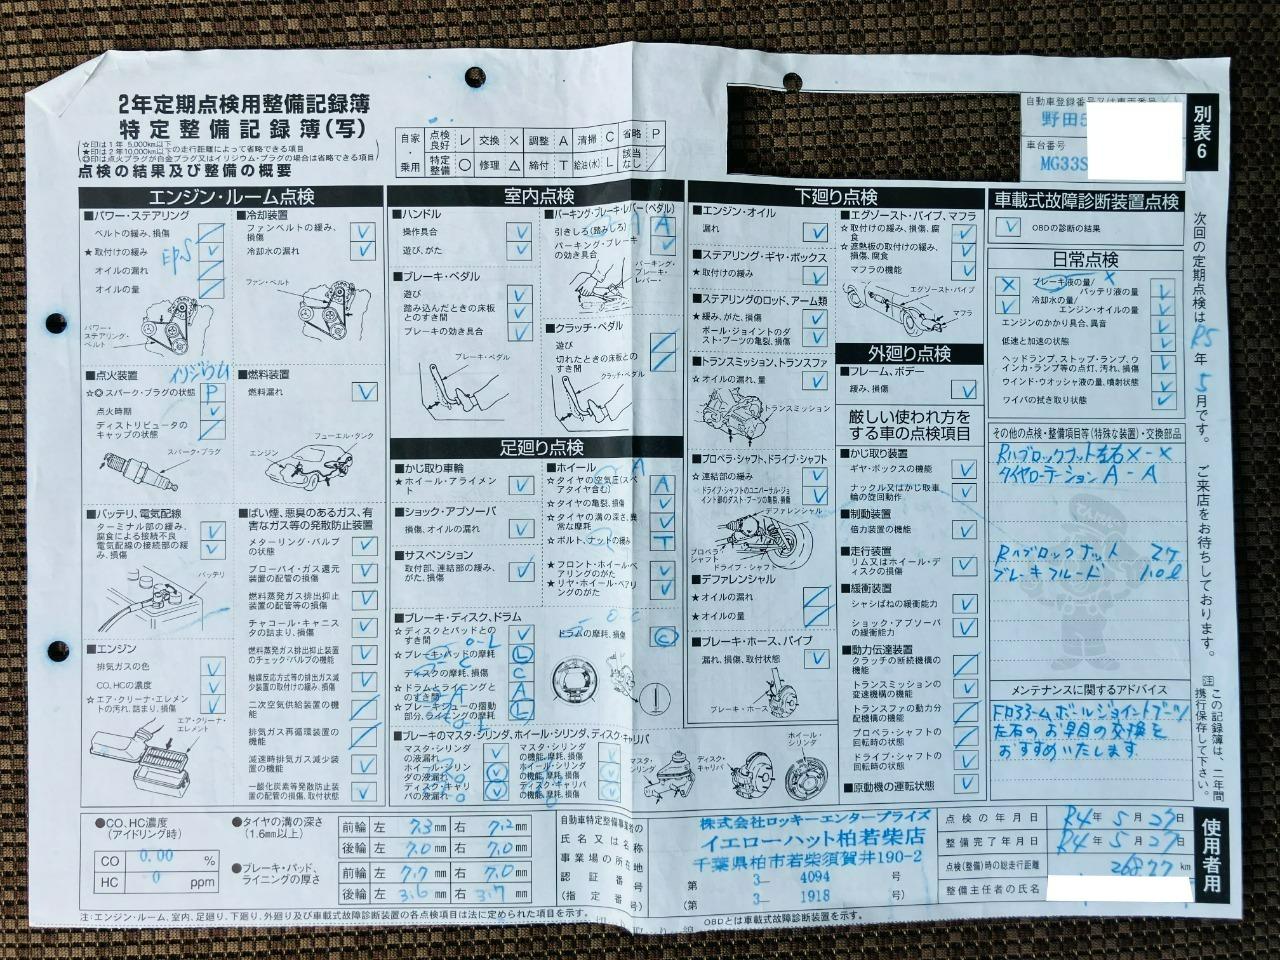 2年定期点検用整備記録簿
特定整備記録簿(写)
☆印は1年 5,000km以下
★印は2年10,000km以下の走行距離によって省略できる項目
◎印は点火プラグが白金プラグ又はイリジウム・プラグの場合は省略できる項目
点検の結果及び整備の概要
自家・乗用
点検良好 レ 交換 × 調整 A 清掃 C 省略 P
特定整備 ○ 修理 △ 締付 T 給油(水) L 該当なし /
自動車登録番号又は車両番号
野田5
車台番号
MG33S
別表6
エンジン・ルーム点検
■パワー・ステアリング
ベルトの緩み、損傷
★取付けの緩み
EPS
オイルの漏れ
オイルの量
パワー・ステアリング・ベルト
■冷却装置
ファンベルトの緩み、損傷
冷却水の漏れ
ファン・ベルト
■点火装置
イリジウム
☆◎スパーク・プラグの状態 P
点火時期
ディストリビュータのキャップの状態
スパーク・プラグ
■燃料装置
燃料漏れ
フューエル・タンク
エンジン
■バッテリ、電気配線
ターミナル部の緩み、腐食による接続不良
電気配線の接続部の緩み、損傷
バッテリ
■エンジン
排気ガスの色
CO、HCの濃度
☆エア・クリーナ・エレメントの汚れ、詰まり、損傷
エア・クリーナ・エレメント
■ばい煙、悪臭のあるガス、有害なガス等の発散防止装置
メターリング・バルブの状態
ブローバイ・ガス還元装置の配管の損傷
燃料蒸発ガス排出抑止装置の配管等の損傷
チャコール・キャニスタの詰まり、損傷
燃料蒸発ガス排出抑止装置のチェック・バルブの機能
触媒反応方式等の排出ガス減少装置の取付けの緩み、損傷
二次空気供給装置の機能
排気ガス再循環装置の機能
減速時排気ガス減少装置の機能
一酸化炭素等発散防止装置の配管の損傷、取付状態
室内点検
■ハンドル
操作具合
遊び、がた
■ブレーキ・ペダル
遊び
踏み込んだときの床板とのすき間
ブレーキの効き具合
ブレーキ・ペダル
■パーキング・ブレーキ・レバー(ペダル)
引きしろ(踏みしろ) A
パーキング・ブレーキの効き具合
パーキング・ブレーキ・レバー
■クラッチ・ペダル
遊び
切れたときの床板とのすき間
クラッチ・ペダル
足廻り点検
■かじ取り車輪
★ホイール・アライメント
■ショック・アブソーバ
損傷、オイルの漏れ
■サスペンション
取付部、連結部の緩み、がた、損傷
■ホイール
☆タイヤの空気圧(スペアタイヤ含む) A
☆タイヤの亀裂、損傷
☆タイヤの溝の深さ、異常な摩耗
☆ボルト、ナットの緩み T
★フロント・ホイール・ベアリングのがた
★リヤ・ホイール・ベアリングのがた
■ブレーキ・ディスク、ドラム
☆ディスクとパッドとのすき間
☆ブレーキ・パッドの摩耗 L
ディスクの摩耗、損傷 C
☆ドラムとライニングとのすき間 A
☆ブレーキシューの摺動部分、ライニングの摩耗 L
ドラムの摩耗、損傷 C
■ブレーキのマスタ・シリンダ、ホイール・シリンダ、ディスク・キャリパ
マスタ・シリンダの液漏れ
ホイール・シリンダの液漏れ
ディスク・キャリパの液漏れ
マスタ・シリンダの機能、摩耗、損傷
ホイール・シリンダの機能、摩耗、損傷
ディスク・キャリパの機能、摩耗、損傷
マスタ・シリンダ
ディスク・キャリパ
ホイール・シリンダ
下廻り点検
■エンジン・オイル
漏れ
■ステアリング・ギヤ・ボックス
★取付けの緩み
■ステアリングのロッド、アーム類
★緩み、がた、損傷
ボール・ジョイントのダスト・ブーツの亀裂、損傷
■トランスミッション、トランスファ
☆オイルの漏れ、量
トランスミッション
■プロペラ・シャフト、ドライブ・シャフト
★連結部の緩み
ドライブ・シャフトのユニバーサル・ジョイント部のダスト・ブーツの亀裂、損傷
デファレンシャル
プロペラ・シャフト
ドライブ・シャフト
■デファレンシャル
★オイルの漏れ
★オイルの量
■ブレーキ・ホース、パイプ
漏れ、損傷、取付状態
ブレーキ・ホース
■エグゾースト・パイプ、マフラ
☆取付けの緩み、損傷、腐食
☆遮熱板の取付けの緩み、損傷、腐食
マフラの機能
エグゾースト・パイプ
マフラ
外廻り点検
■フレーム、ボデー
緩み、損傷
厳しい使われ方をする車の点検項目
■かじ取り装置
ギヤ・ボックスの機能
ナックル又はかじ取車輪の旋回動作
■制動装置
倍力装置の機能
■走行装置
リム又はホイール・ディスクの損傷
■緩衝装置
シャシばねの緩衝能力
ショック・アブソーバの緩衝能力
■動力伝達装置
クラッチの断続機構の機能
トランスミッションの変速機構の機能
トランスファの動力分配機構の機能
プロペラ・シャフトの回転時の状態
ドライブ・シャフトの回転時の状態
■原動機の運転状態
車載式故障診断装置点検
OBDの診断の結果
日常点検
ブレーキ液の量/バッテリ液の量
冷却水の量/エンジン・オイルの量
エンジンのかかり具合、異音
低速と加速の状態
ヘッドランプ、ストップ・ランプ、ウインカ・ランプ等の点灯、汚れ、損傷
ウインド・ウオッシャ液の量、噴射状態
ワイパの拭き取り状態
その他の点検・整備項目等(特殊な装置)・交換部品
Rハブロックナット左右 X-X
タイヤローテーション A-A
Rハブロックナット 2ケ
ブレーキフルード 1.0ℓ
メンテナンスに関するアドバイス
Fロアームボールジョイントブーツ
左右のお早目の交換を
おすすめいたします
次回の定期点検はR5年5月です。 ご来店をお待ちしております。
注 この記録簿は、二年間携行保存して下さい。
使用者用
●CO、HC濃度(アイドリング時)
CO 0.00 %
HC 0 ppm
●タイヤの溝の深さ(1.6mm以上)
前輪 左 7.3mm 右 7.2mm
後輪 左 7.0mm 右 7.0mm
●ブレーキ・パッド、ライニングの厚さ
前輪 左 7.7mm 右 7.0mm
後輪 左 3.6mm 右 3.7mm
自動車特定整備事業者の
氏名又は名称
事業場の所在
認証番号
(指定番号)
株式会社ロッキーエンタープライズ
イエローハット柏若柴店
千葉県柏市若柴須賀井190-2
第 3- 4094 号
(第 3- 1918 号)
点検の年月日 R4年5月27日
整備完了年月日 R4年5月27日
点検(整備)時の総走行距離 26877km
整備主任者の氏名
注:エンジン・ルーム、室内、足廻り、下廻り、外廻り及び車載式故障診断装置の各点検項目は法に定められた項目を示す。
OBDとは車載式故障診断装置を示す。